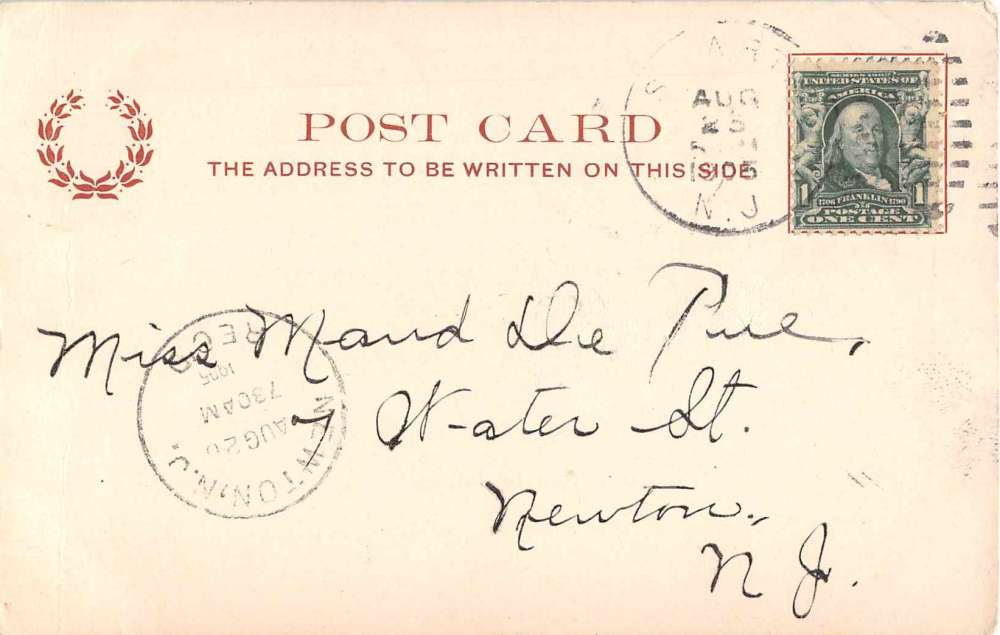 POST CARD
THE ADDRESS TO BE WRITTEN ON THIS SIDE
AUG
1905
N.J.
SERIES 1902
UNITED STATES OF
AMERICA
1
1706 FRANKLIN 1790
POSTAGE
ONE CENT
Miss Maud De Pue,
Water St.
Newton,
N J.
NEWTON, N.J.
AUG 26
730AM
1905
REC'D